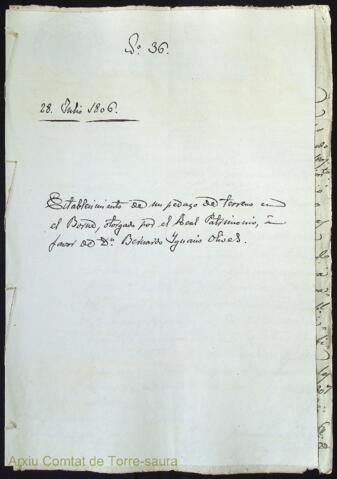 Nº 36.
28. Julio 1806.
Establecimiento de un pedazo de terreno en
el Borne, otorgado por el Real Patrimonio, à
favor de Dn. Bernardo Ygnacio Olives.
Arxiu Comtat de Torre-saura